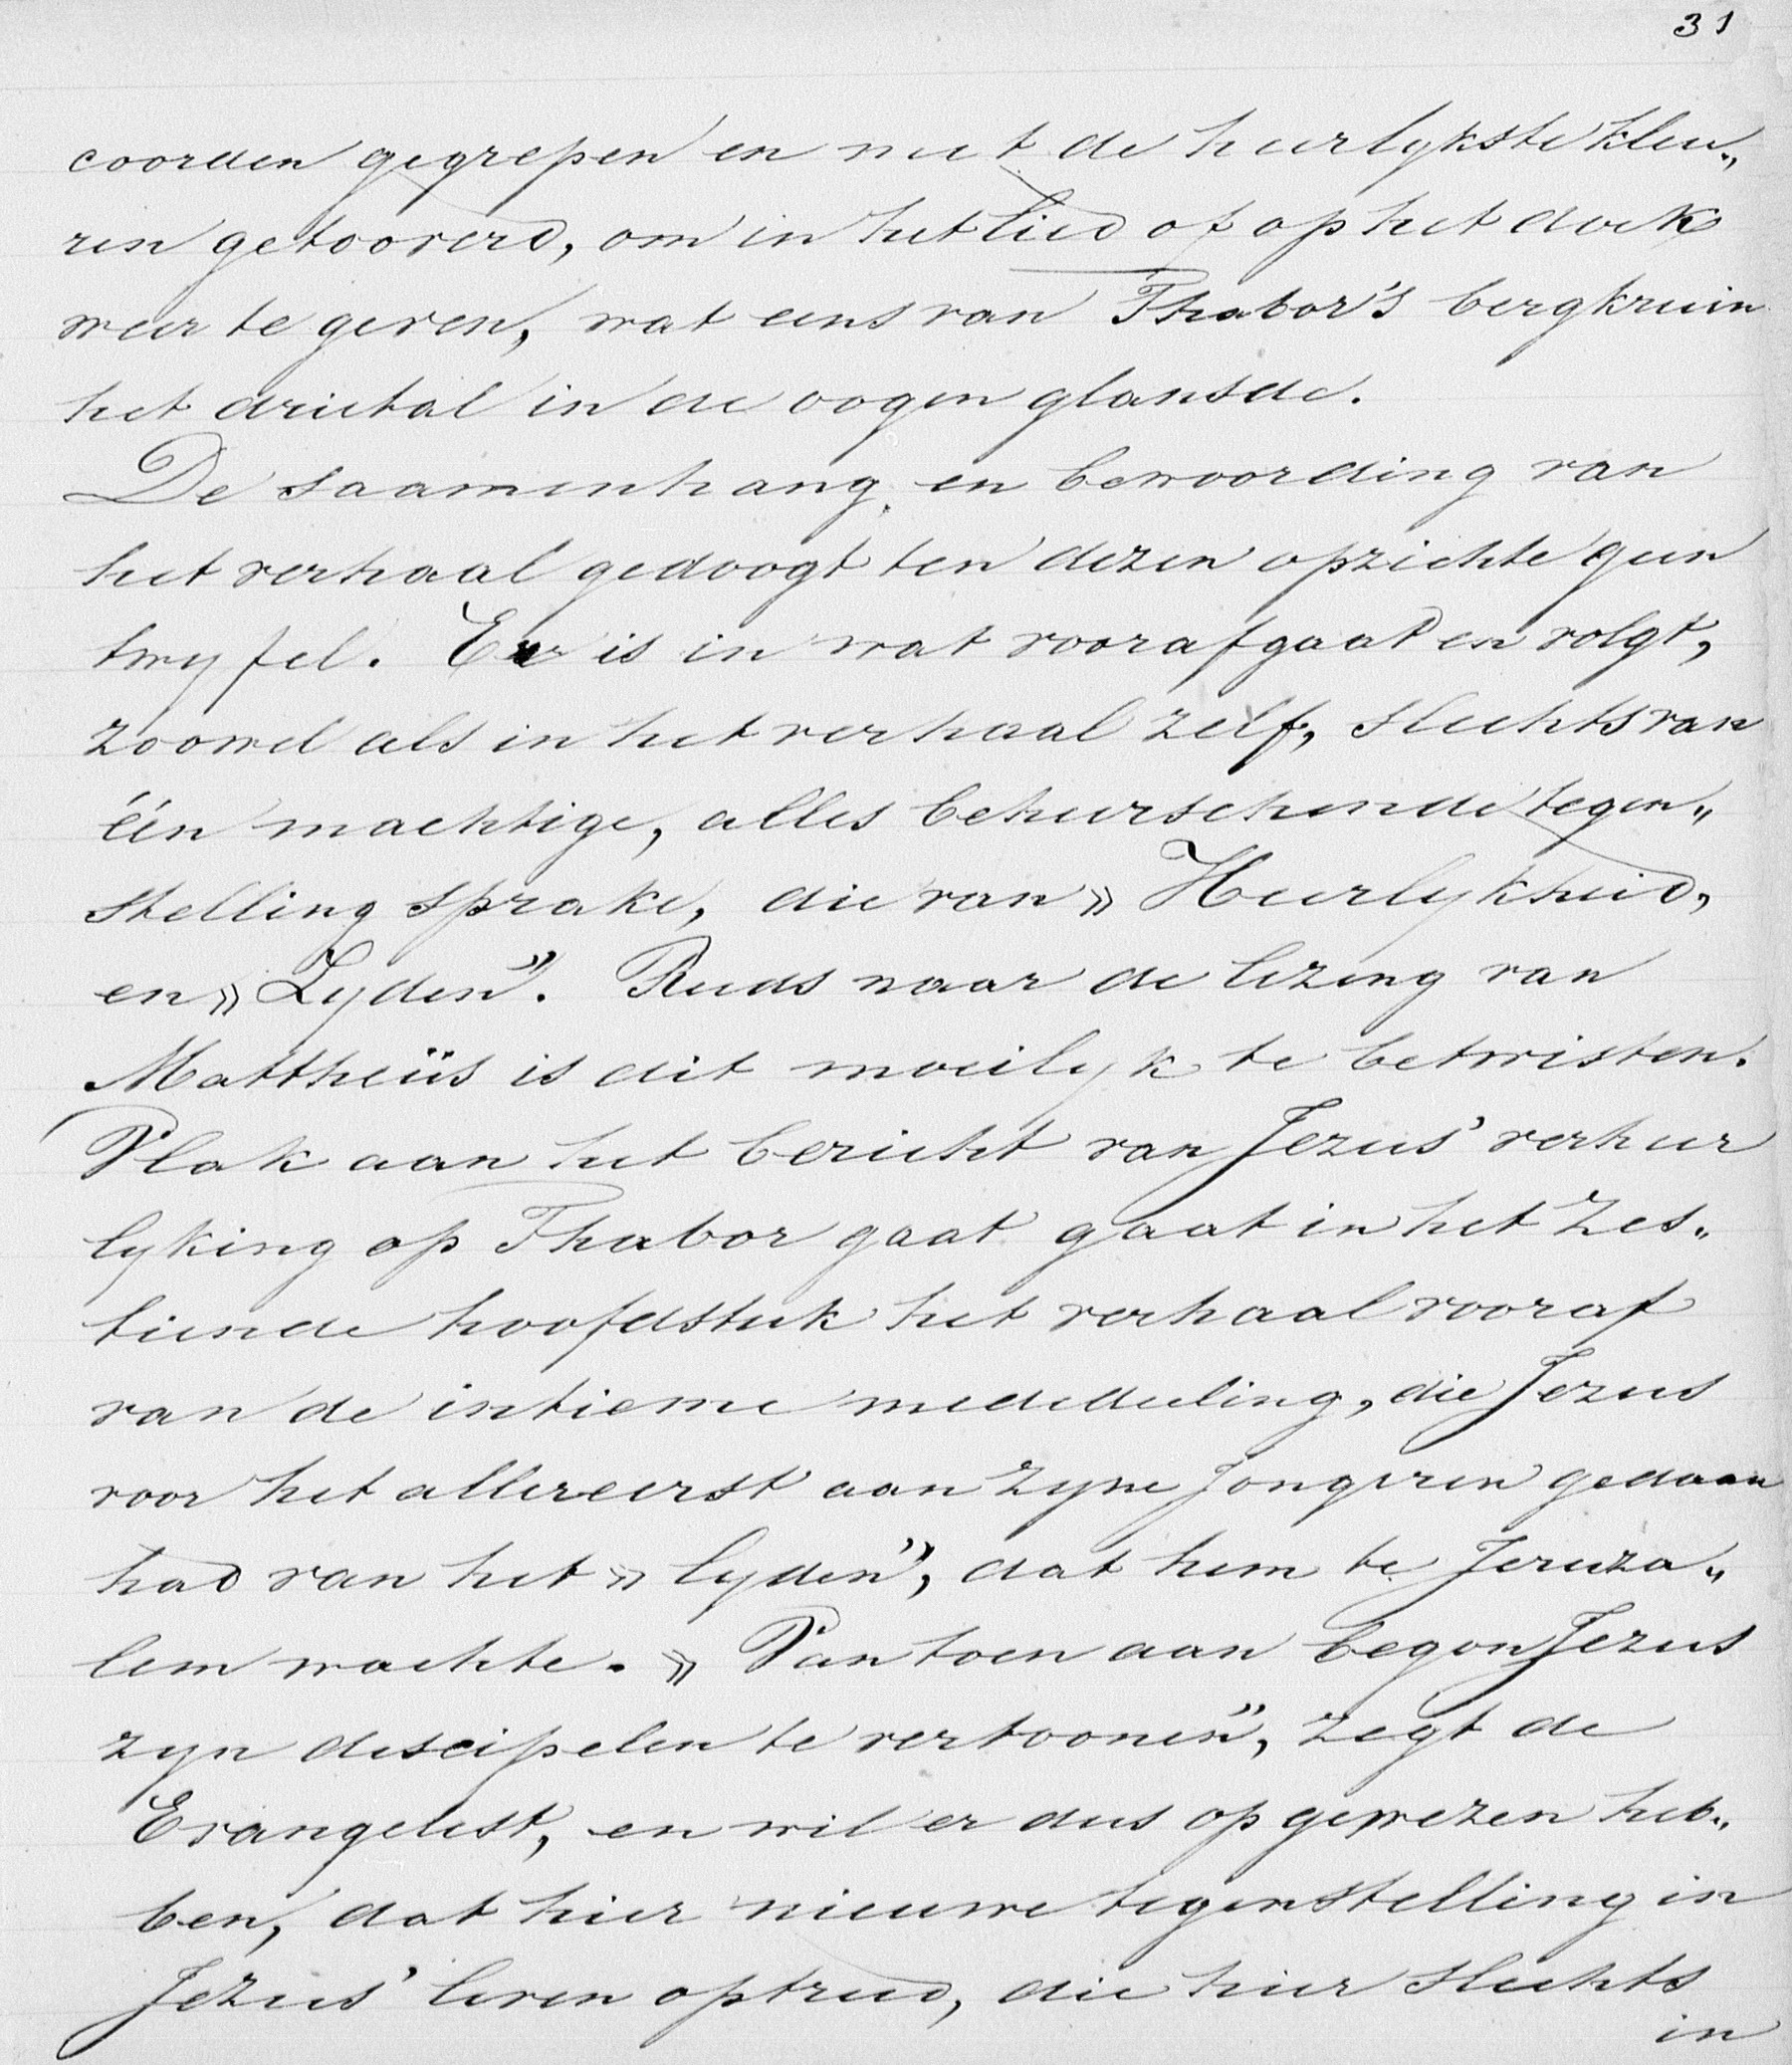 31
coorden gegrepen en met de heerlykste kleu„
ren getooverd, om in het lied of op het doek
weer te geven, wat eens van Thabor's bergkruin
het drietal in de oogen glansde.
De saamenhang en bewoording van
het verhaal gedoogt ten dezen opzichte geen
twyfel. Er is in wat voorafgaat en volgt,
zoowel als in het verhaal zelf, slechts van
één machtige, alles beheerschende tegen„
stelling sprake, die van » Heerlykheid,
en » Lyden". Reeds naar de lezing van
Mattheüs is dit moeilyk te betwisten.
Vlak aan het bericht van Jezus' verheer
lyking op Thabor gaat gaat in het zes„
tiende hoofdstuk het verhaal vooraf
van de intieme mededeeling, die Jezus
voor het allereerst aan zyne jongeren gedaan
had van het » lyden", dat hem te Jeruza„
lem wachte. » Van toen aan begon Jezus
zyn discipelen te vertoonen", zegt de
Evangelist, en wil er dus op gewezen heb„
ben, dat hier nieuwe tegenstelling in
Jezus' leven optreed, die hier slechts
in